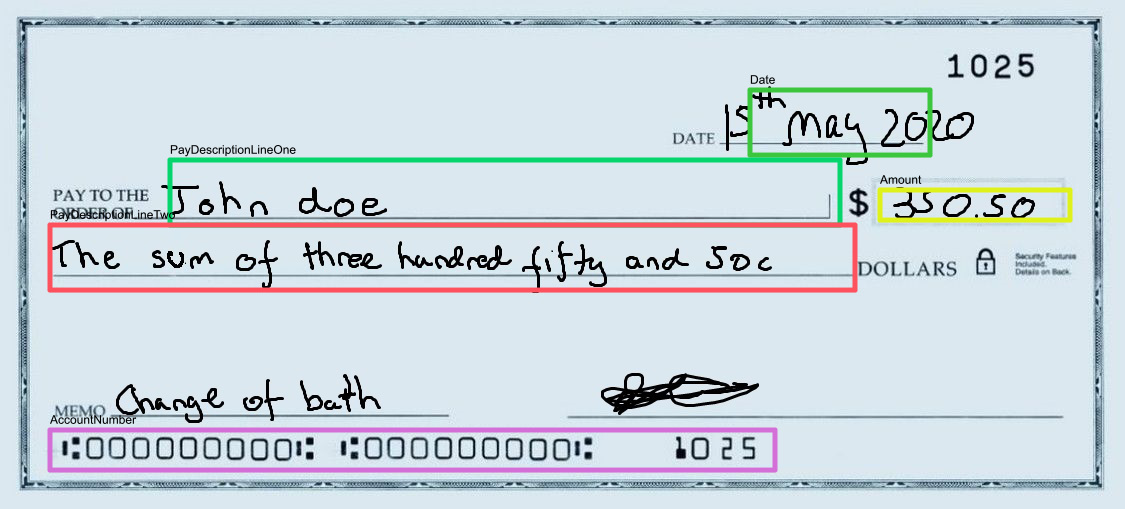 1025
Date
DATE 15th May 2020
PayDescriptionLineOne
PAY TO THE
ORDER OF John doe
Amount
$ 350.50
PayDescriptionLineTwo
The sum of three hundred fifty and 50c DOLLARS
Security Features
Included.
Details on Back.
MEMO Change of bath
AccountNumber
⑆000000000⑆ ⑆000000000⑆ 1025